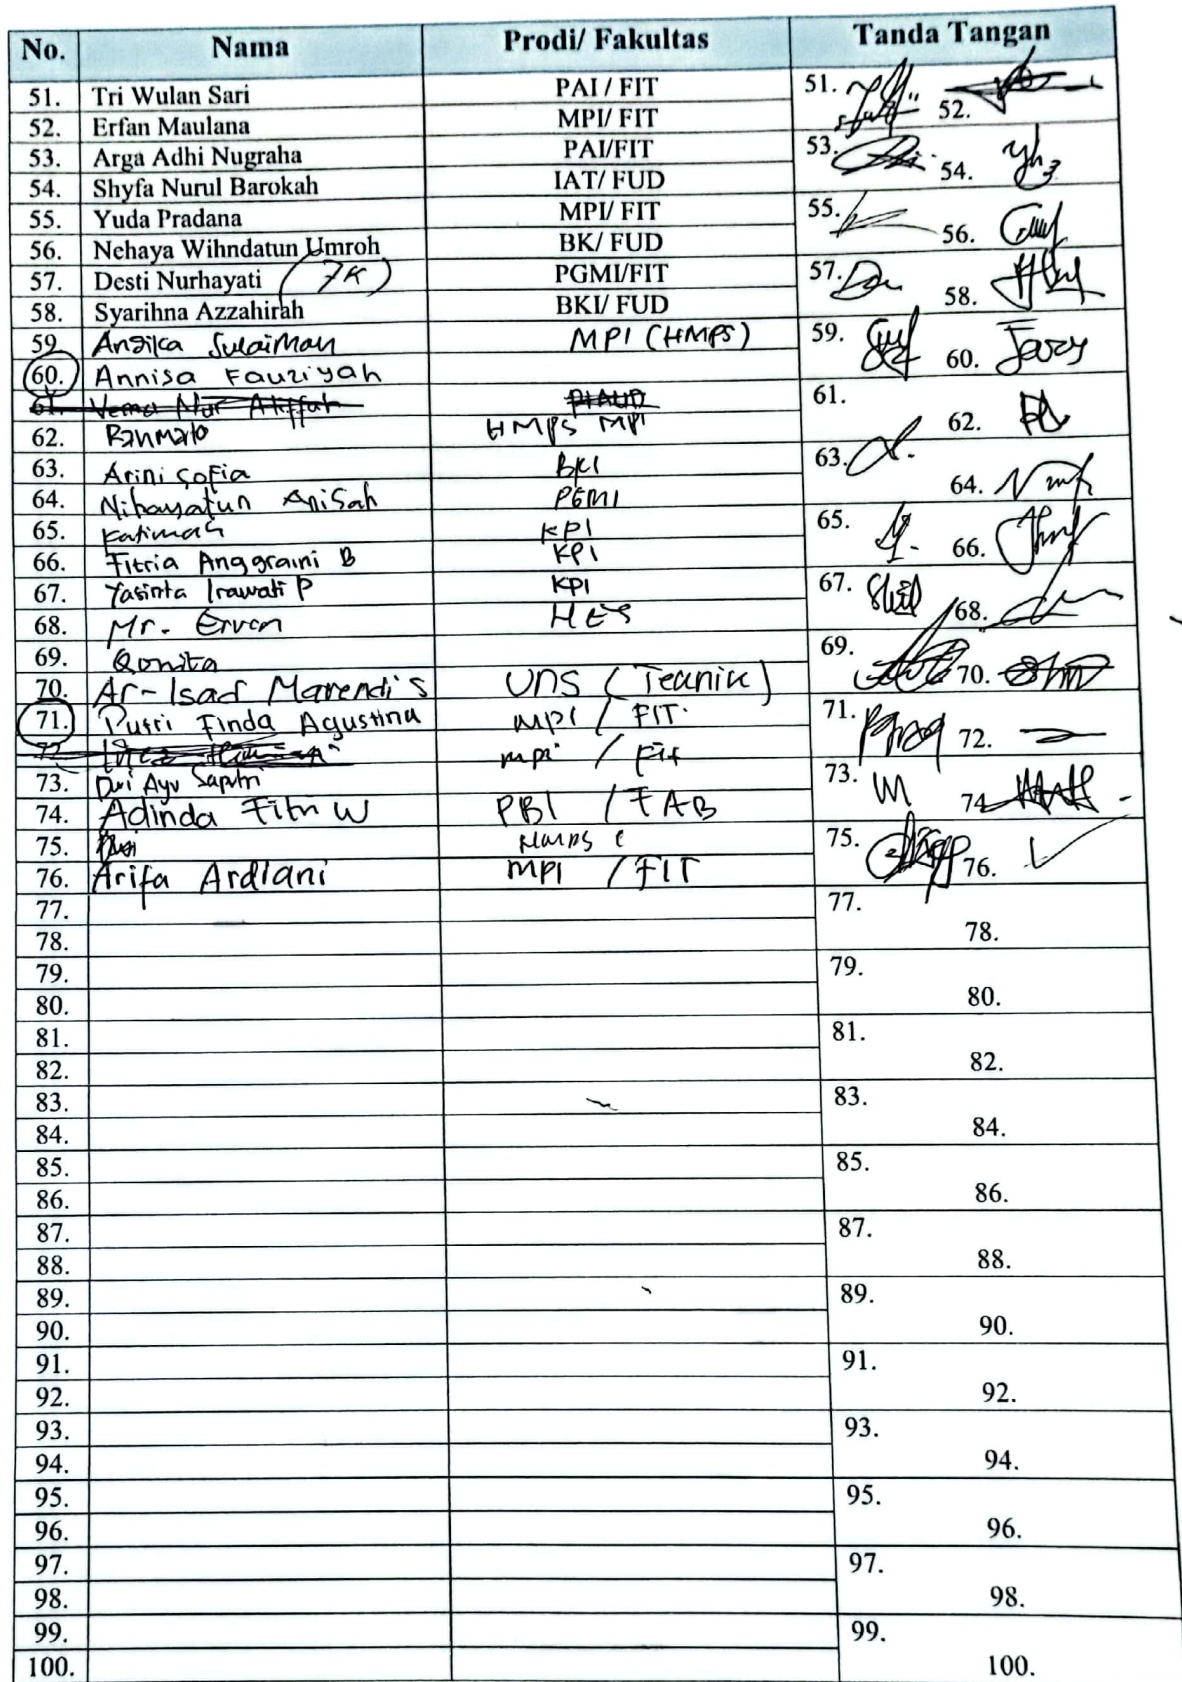 No. Nama Prodi/ Fakultas Tanda Tangan
51. Tri Wulan Sari PAI / FIT 51.
52. Erfan Maulana MPI/ FIT 52.
53. Arga Adhi Nugraha PAI/FIT 53.
54. Shyfa Nurul Barokah IAT/ FUD 54.
55. Yuda Pradana MPI/ FIT 55.
56. Nehaya Wihndatun Umroh BK/ FUD 56.
57. Desti Nurhayati (7K) PGMI/FIT 57.
58. Syarihna Azzahirah BKI/ FUD 58.
59. Angika Sulaiman MPI (HMPS) 59.
60. Annisa Fauziyah 60.
61. Nur PIAUD 61.
62. Rahmato HMPS MPI 62.
63. Arini Sofia BKI 63.
64. Nihayatun Anisah PGMI 64.
65. Fatimah KPI 65.
66. Fitria Anggraini B KPI 66.
67. Yasinta Irawati P KPI 67.
68. Mr. Ervan HES 68.
69. Qonita 69.
70. Ar-Isad Marendi's UNS (Teknik) 70.
71. Putri Finda Agustina MPI / FIT. 71.
72. mpi / Fit 72.
73. Dwi Ayu Saputri 73.
74. Adinda Fitri W PBI / FAB 74.
75. HMPS 75.
76. Arifa Ardiani MPI / FIT 76.
77. 77.
78. 78.
79. 79.
80. 80.
81. 81.
82. 82.
83. 83.
84. 84.
85. 85.
86. 86.
87. 87.
88. 88.
89. 89.
90. 90.
91. 91.
92. 92.
93. 93.
94. 94.
95. 95.
96. 96.
97. 97.
98. 98.
99. 99.
100. 100.